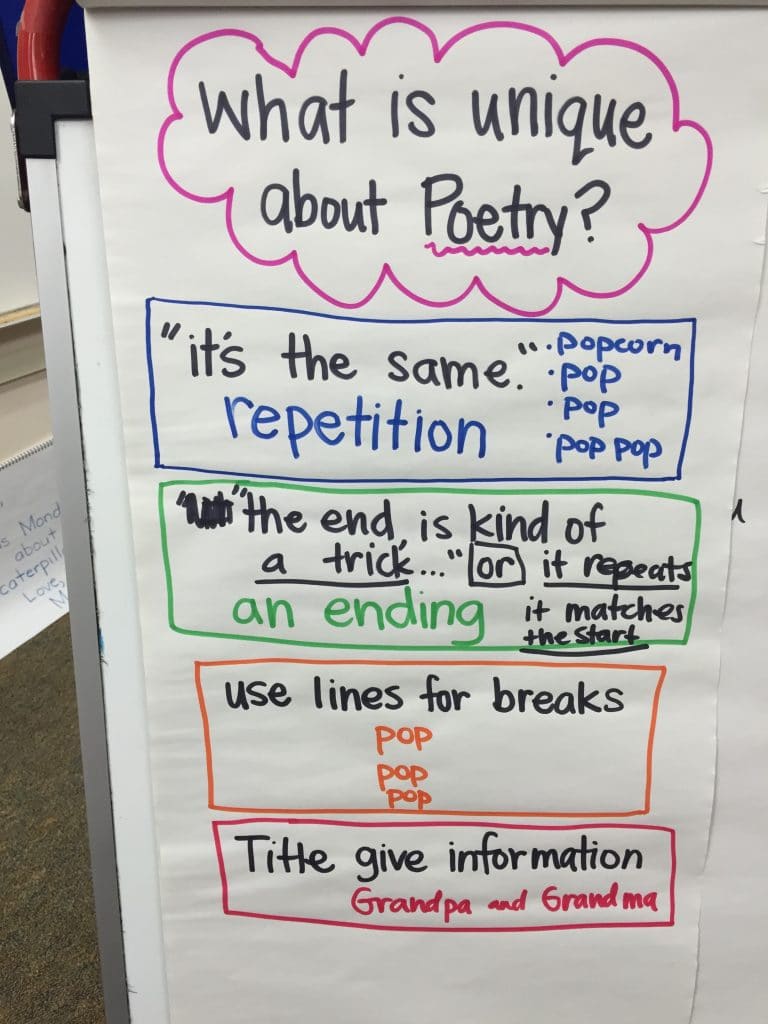 What is unique
about Poetry?
"it's the same."
repetition
·popcorn
·pop
·pop
·pop pop
"the end, is kind of
a trick..." or it repeats
an ending it matches
the start
use lines for breaks
pop
pop
pop
Title give information
Grandpa and Grandma
s Mond
about
caterpill
Love,
M